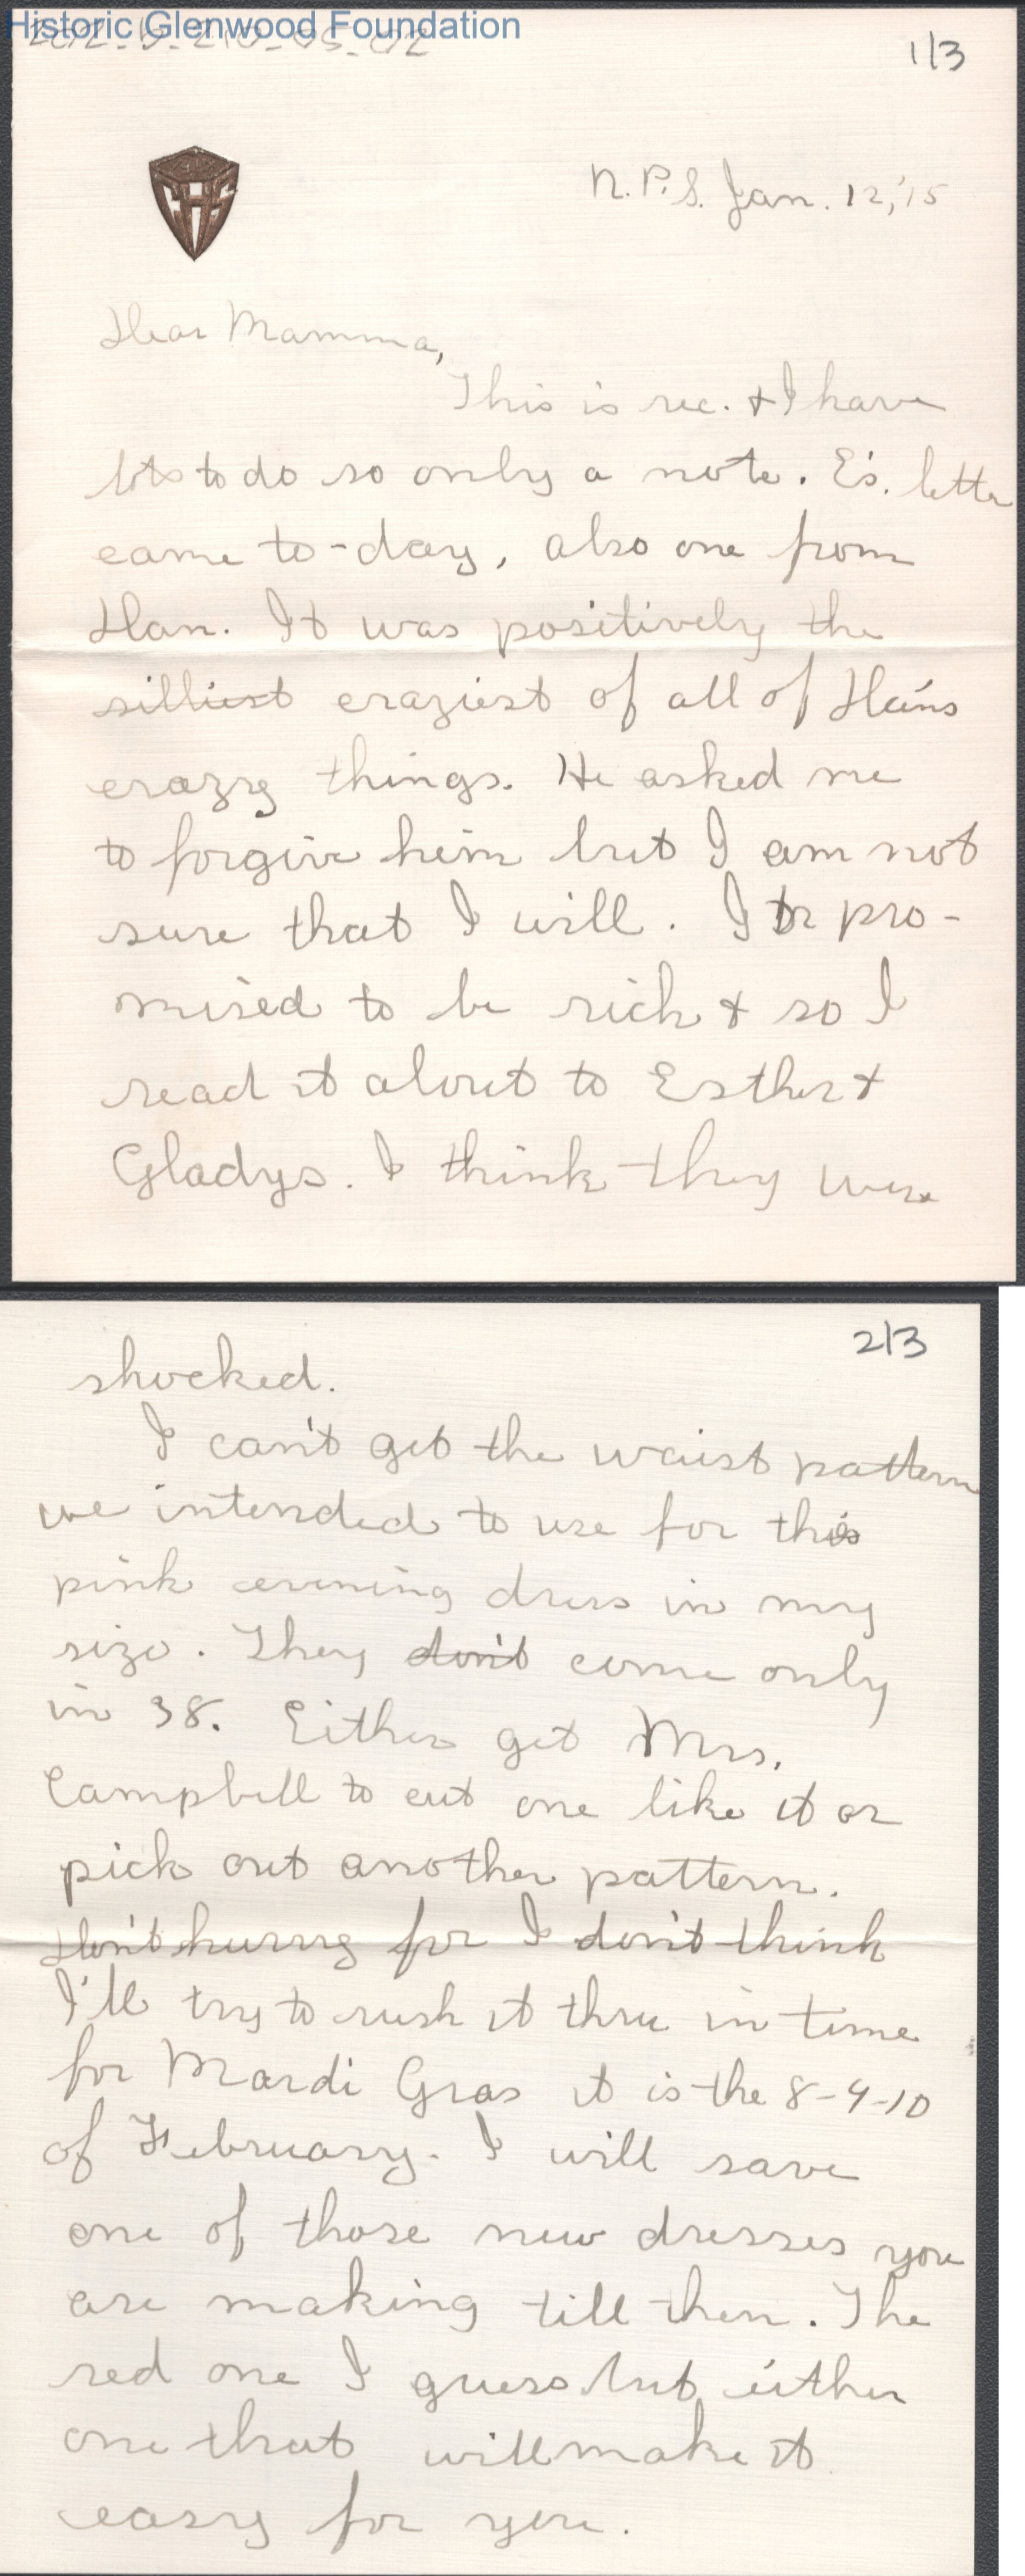 Historic Glenwood Foundation
1/3
CHS
N.P.S. Jan. 12,'15
Dear Mamma,
This is rec. & I have
lots to do so only a note. E's. letter
came to-day, also one from
Dan. It was positively the
silliest craziest of all of Dan's
crazy things. He asked me
to forgive him but I am not
sure that I will. It pro-
mised to be rich & so I
read it alout to Esther &
Gladys. I think they were
2/3
shocked.
I can't get the waist pattern
we intended to use for this
pink evening dress in my
size. They don't come only
in 38. Either get Mrs.
Campbell to cut one like it or
pick out another pattern.
Don't hurry for I don't think
I'll try to rush it thru in time
for Mardi Gras it is the 8-9-10
of February. I will save
one of those new dresses you
are making till then. The
red one I guess but either
one that will make it
easy for you.